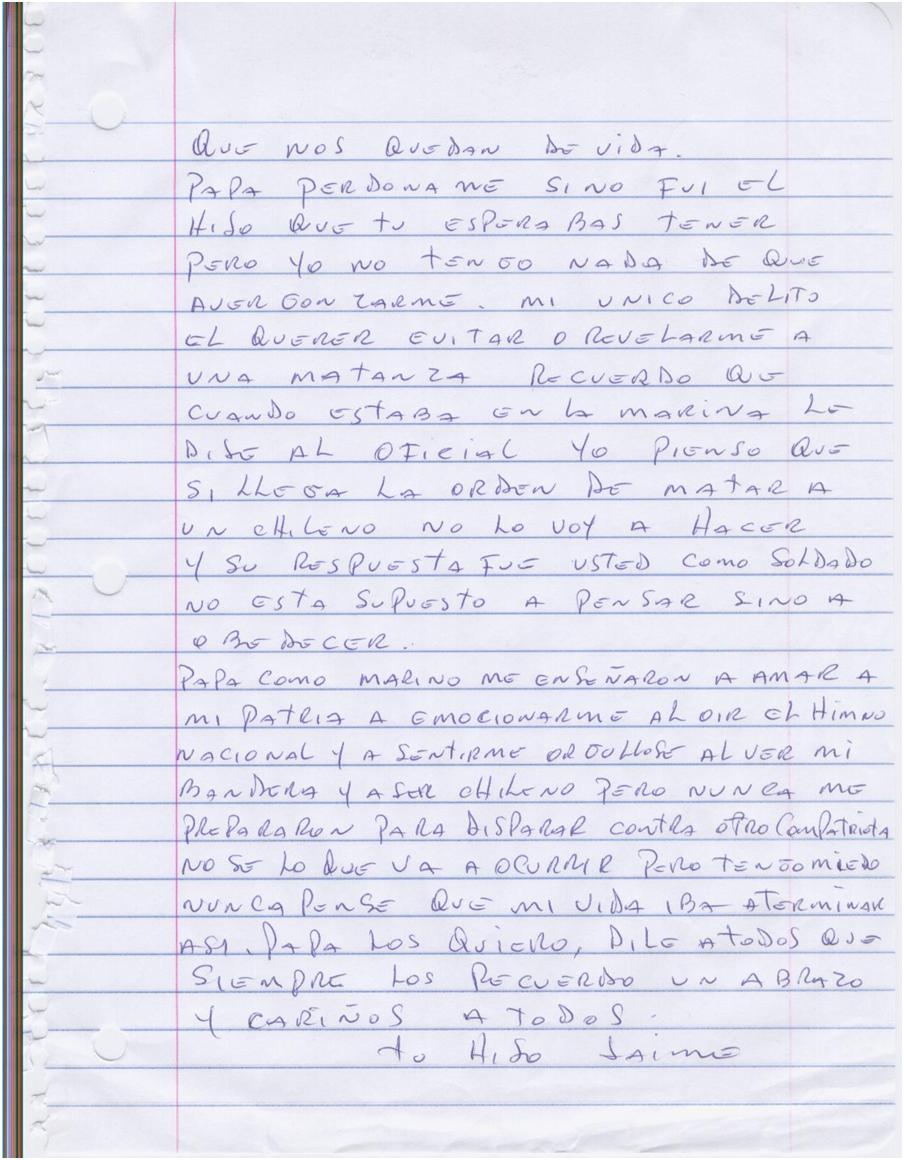 QUE NOS QUEDAN DE VIDA.
PAPA PERDONAME SI NO FUI EL
HIJO QUE TU ESPERABAS TENER
PERO YO NO TENGO NADA DE QUE
AVERGONZARME. MI UNICO DELITO
EL QUERER EVITAR O REVELARME A
UNA MATANZA RECUERDO QUE
CUANDO ESTABA EN LA MARINA LE
DIJE AL OFICIAL YO PIENSO QUE
SI LLEGA LA ORDEN DE MATAR A
UN CHILENO NO LO VOY A HACER
Y SU RESPUESTA FUE USTED COMO SOLDADO
NO ESTA SUPUESTO A PENSAR SINO A
OBEDECER.
PAPA COMO MARINO ME ENSEÑARON A AMAR A
MI PATRIA A EMOCIONARME AL OIR EL HIMNO
NACIONAL Y A SENTIRME ORGULLOSE AL VER MI
BANDERA Y A SER CHILENO PERO NUNCA ME
PREPARARON PARA DISPARAR CONTRA OTRO COMPATRIOTA
NO SE LO QUE VA A OCURRIR PERO TENGO MIEDO
NUNCA PENSE QUE MI VIDA IBA A TERMINAR
ASI. PAPA LOS QUIERO, DILE A TODOS QUE
SIEMPRE LOS RECUERDO UN ABRAZO
Y CARIÑOS A TODOS.
TU HIJO JAIME